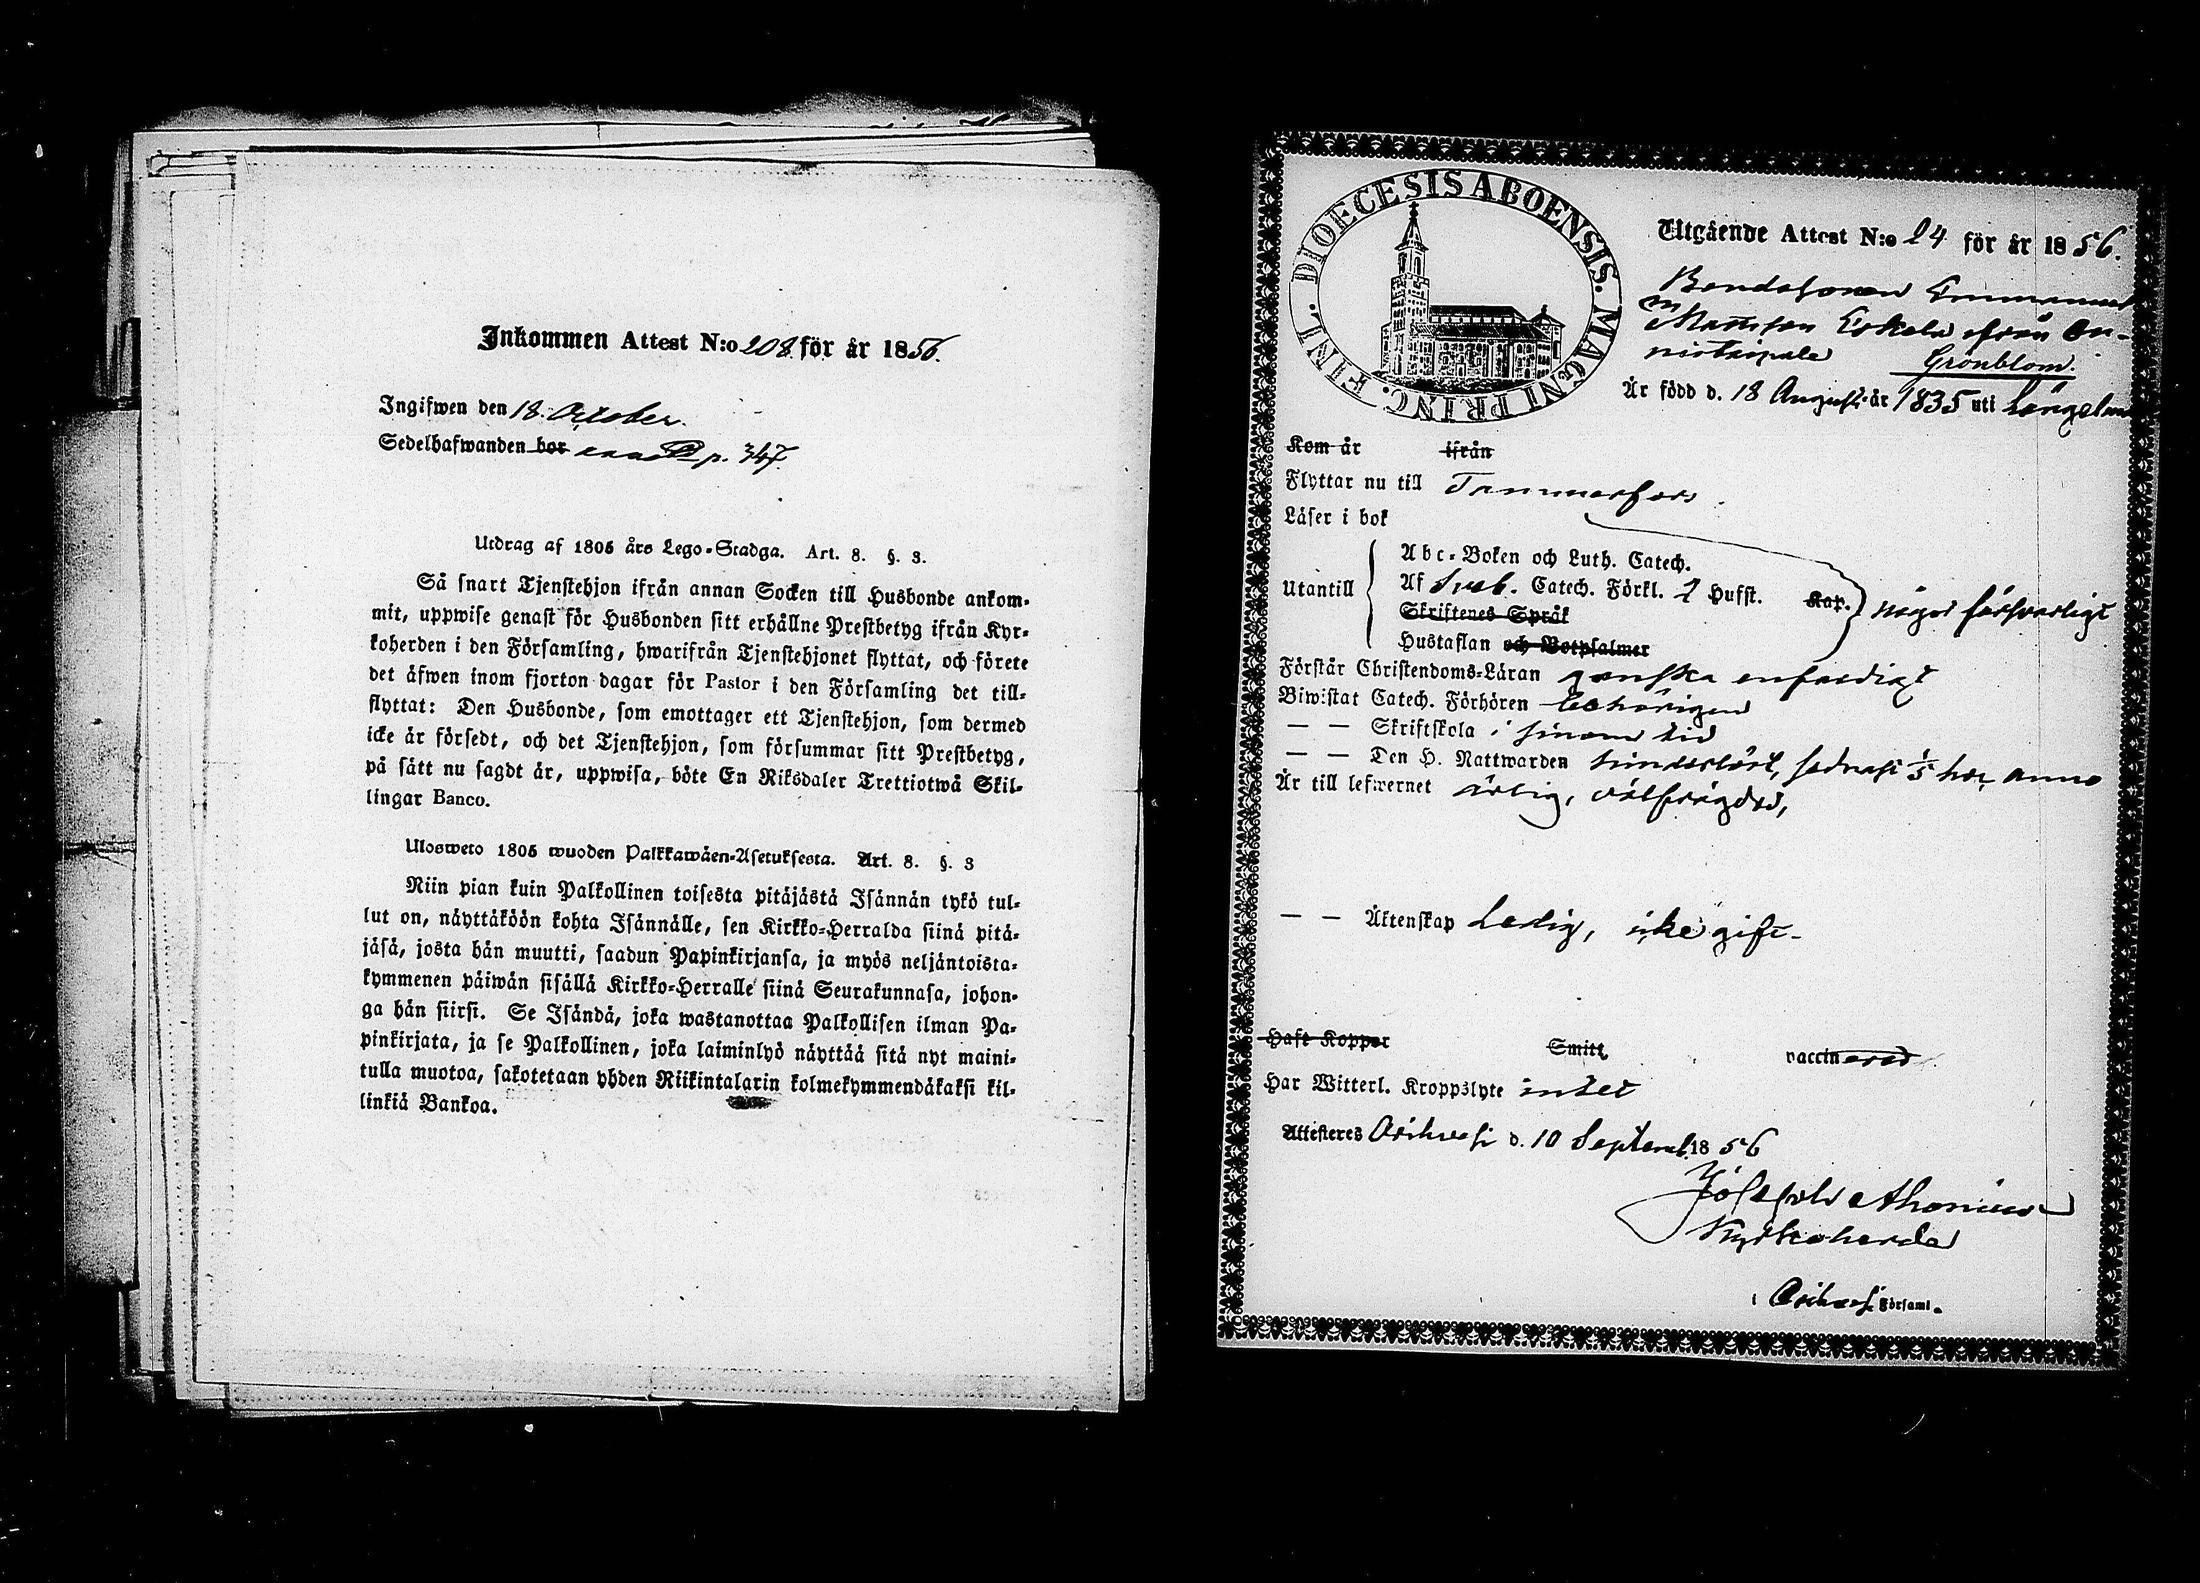 Inkommen Attest N:o 208 för år 1856.
Ingifwen den 18 October.
Sedelhafwanden bor p. 347.
Utdrag af 1805 års Lego-Stadga. Art. 8. §. 3.
Så snart Tjenstehjon ifrån annan Socken till Husbonde ankom-
mit, uppwise genast för Husbonden sitt erhållne Prestbetyg ifrån Kyr-
koherden i den Församling, hwarifrån Tjenstehjonet flyttat, och förete
det äfwen inom fjorton dagar för Pastor i den Församling det till-
flyttat: Den Husbonde, som emottager ett Tjenstehjon, som dermed
icke är försedt, och det Tjenstehjon, som försummar sitt Prestbetyg,
på sätt nu sagdt är, uppwisa, böte En Riksdaler Trettiotwå Skil-
lingar Banco.
Ulosweto 1805 wuoden Palkkawäen-Asetuksesta. Art. 8. §. 3
Niin pian kuin Palkollinen toisesta pitäjästä Isännän tykö tul-
lut on, näyttäköön kohta Isännälle, sen Kirkko-Herralda siinä pitä-
jäsä, josta hän muutti, saadun Papinkirjansa, ja myös neljäntoista-
kymmenen päiwän sisällä Kirkko-Herralle siinä Seurakunnasa, johon-
ga hän siirsi. Se Isändä, joka wastanottaa Palkollisen ilman Pa-
pinkirjata, ja se Palkollinen, joka laiminlyö näyttää sitä nyt maini-
tulla muotoa, sakotetaan yhden Riikintalarin kolmekymmendäkaksi kil-
linkiä Bankoa.
DIOECESIS ABOENSIS. MAGNI PRINC. FINL.
Utgående Attest N:o 24 för år 1856.
Bondesonen Emmanuel
Mattsson Erkelä ifrån On-
nistaipale Grönblom.
Är född d. 18 Augusti år 1835 uti Längelm
Kom år ifrån
Flyttar nu till Tammerfors.
Läser i bok
Utantill
Abc-Boken och Luth. Catech.
Af Sveb. Catech. Förkl. 2 Hufst. Kap. något försvarligt
Skriftenes Språk
Hustaflan och Botpsalmer
Förstår Christendoms-Läran ganska enfaldigt
Biwistat Catech. Förhören behörigen
— — Skriftskola i sinom tid
— — Den H. Nattwarden hinderlöst, sednast 1/5 hoc anno
Är till lefwernet ärlig, välfrägdad,
— — Äktenskap Ledig, icke gift.
Haft Koppor Smitt vaccinerad
Har Witterl. Kroppslyte intet
Attesteres Orihvesi d. 10 Septemb. 1856
Kyrkoherde
i Orihvesi Församl.